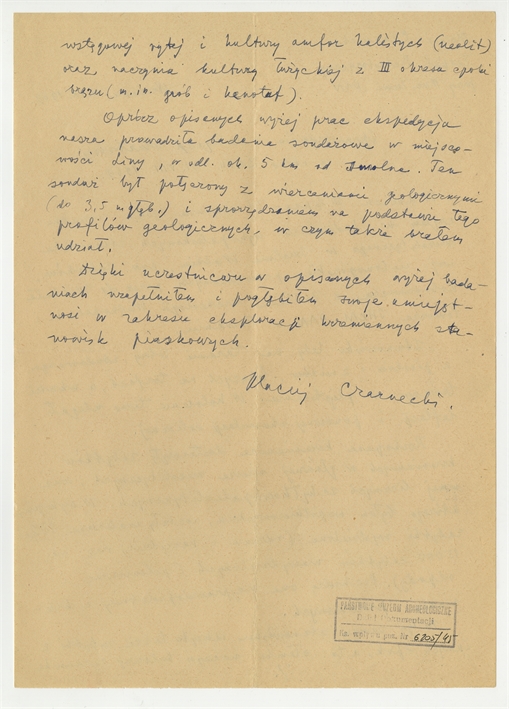 wstęgowej rytej i kultury amfor kulistych (neolit)
oraz naczynia kultury łużyckiej z III okresu epoki
brązu (m.in. grób i kenotaf).
Oprócz opisanych wyżej prac ekspedycja
nasza prowadziła badania sondażowe w miejsco-
wości Liny, w odl. ok. 5 km od Smolna. Ten
sondaż był połączony z wierceniami geologicznymi
(do 3,5 m głęb.) i sporządzaniem na podstawie tego
profilów geologicznych, w czym także brałem
udział.
Dzięki uczestnictwu w opisanych wyżej bada-
niach uzupełniłem i pogłębiłem swoje umiejęt-
ności w zakresie eksploracji krzemiennych sta-
nowisk piaskowych.
Maciej Czarnecki.
PAŃSTWOWE MUZEUM ARCHEOLOGICZNE
Dział Dokumentacji
Ks. wpływu poz. Nr 6805/45